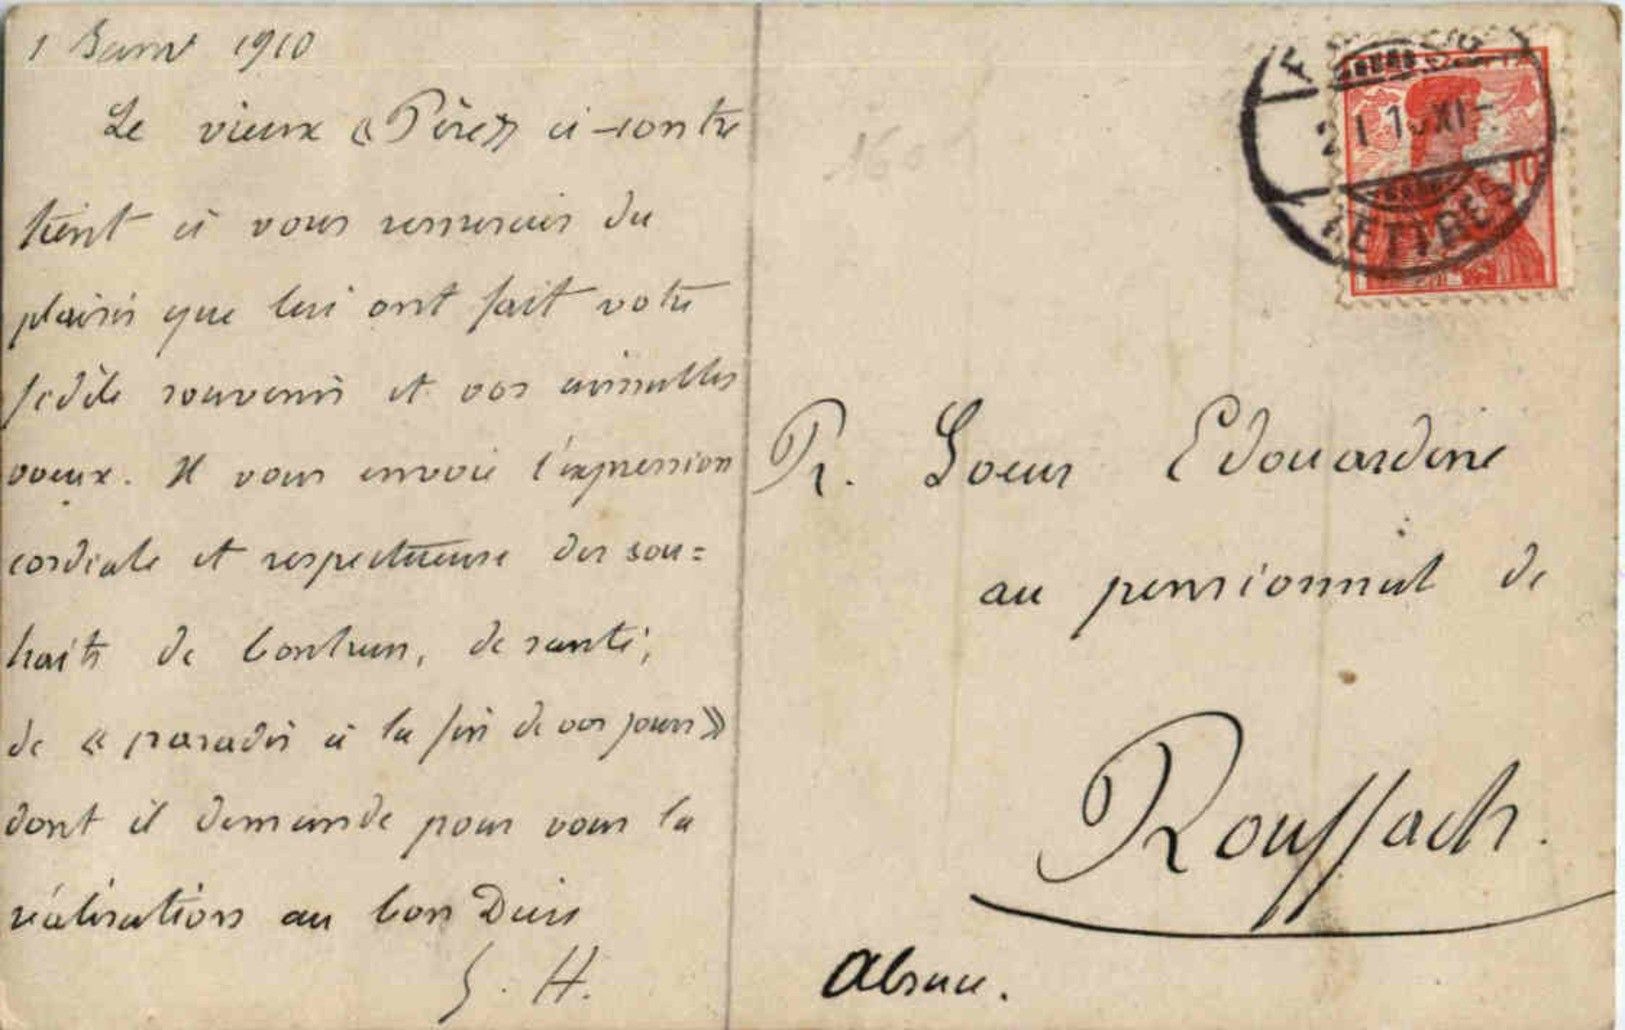 1 Janv 1910
Le vieux « Père » ci-contre
tient à vous remercier du
plaisir que lui ont fait votre
fidèle souvenir et vos aimables
voeux. Il vous envoie l'expression
cordiale et respectueuse des sou=
haits de bonheur, de santé,
de « paradis à la fin de vos jours »
dont il demande pour vous la
réalisation au bon Dieu
S. H.
R. Soeur Edouardine
au pensionnat de
Rouffach.
Alsace.
2 I 10 XI-
LETTRES
10